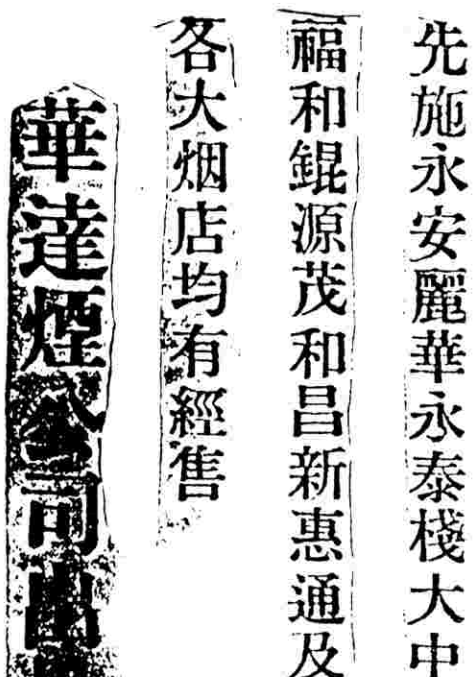 先施永安麗華永泰棧大中
福和錕源茂和昌新惠通及
各大烟店均有經售
華達煙公司出